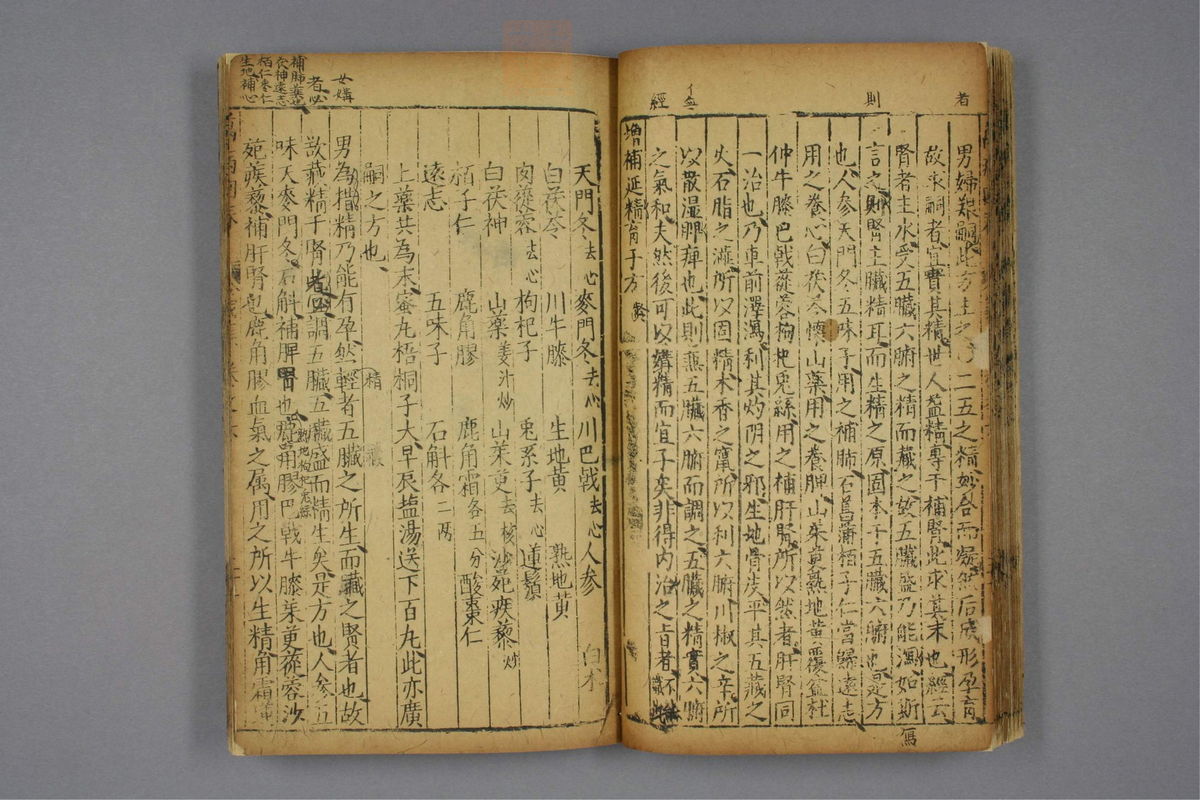 者
則
經
男婦艱嗣此方主之二五之精妙合而凝然后成形孕育
故求嗣者宜實其精世人益精專于補腎此求其末也經云
腎者主水受五臟六腑之精而藏之故五臟盛乃能瀉如斯
言之則腎主臟精耳而生精之原固本于五臟六腑也是方
也人參天門冬五味子用之補肺石菖蒲栢子仁當歸遠志
用之養心白茯苓懷山藥用之養脾山茱萸熟地黃覆盆杜
仲牛膝巴戟蓯蓉枸杞兎絲用之補肝腎所以然者肝腎同
一治也乃車前澤瀉利其灼阴之邪生地骨皮平其五藏之
火石脂之澁所以固精木香之竄所以利六腑川椒之辛所
以散湿脾痺也此則兼五臟六腑而調之五臟之精實六腑
之氣和夫然後可以媾精而宜子矣非得内治之旨者
寫
增補延精育子方
女媾
者必
補肺藥
茯神遠志
栢仁枣仁
生地補心
天門冬去心 麥門冬去心 川巴戟去心 人參 白术
白茯苓 川牛膝 生地黃 熟地黃
肉蓯蓉去心 枸杞子 兎系子去心 蓮鬚
白茯神 山藥姜汁炒 山茱萸去核 沙苑疾藜炒
栢子仁 鹿角膠 鹿角霜各五分 酸棗仁
遠志 五味子 石斛各二两
上藥共為末蜜丸梧桐子大早辰盐湯送下百丸此亦廣
嗣之方也 精 藏
男為揩精乃能有孕然輕者五臟之所生而藏之賢者也故
欲藏精于腎者必調五臟五臟盛而精生矣是方也人參五
味天麥門冬石斛補脾胃也鹿角膠巴戟牛膝茱萸蓯蓉沙
熟地枸杞兎絲
苑蒺藜補肝腎也鹿角膠血氣之属用之所以生精角霜